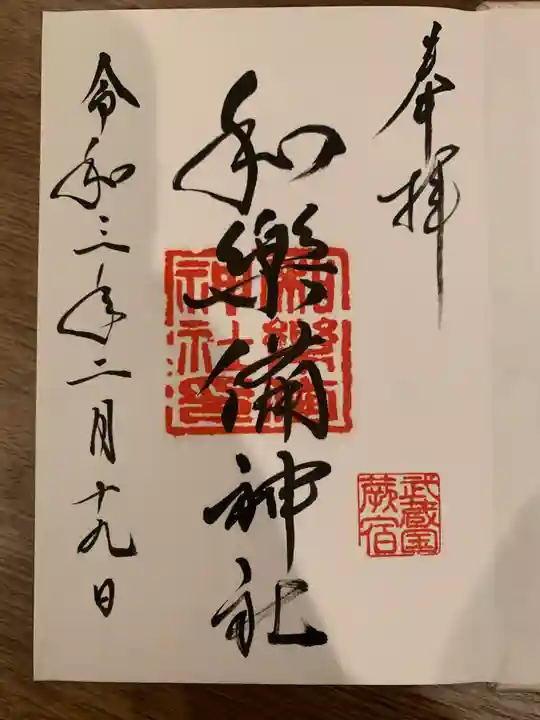 奉拝
武蔵国
蕨宿
和樂備神社
令和三年二月十九日